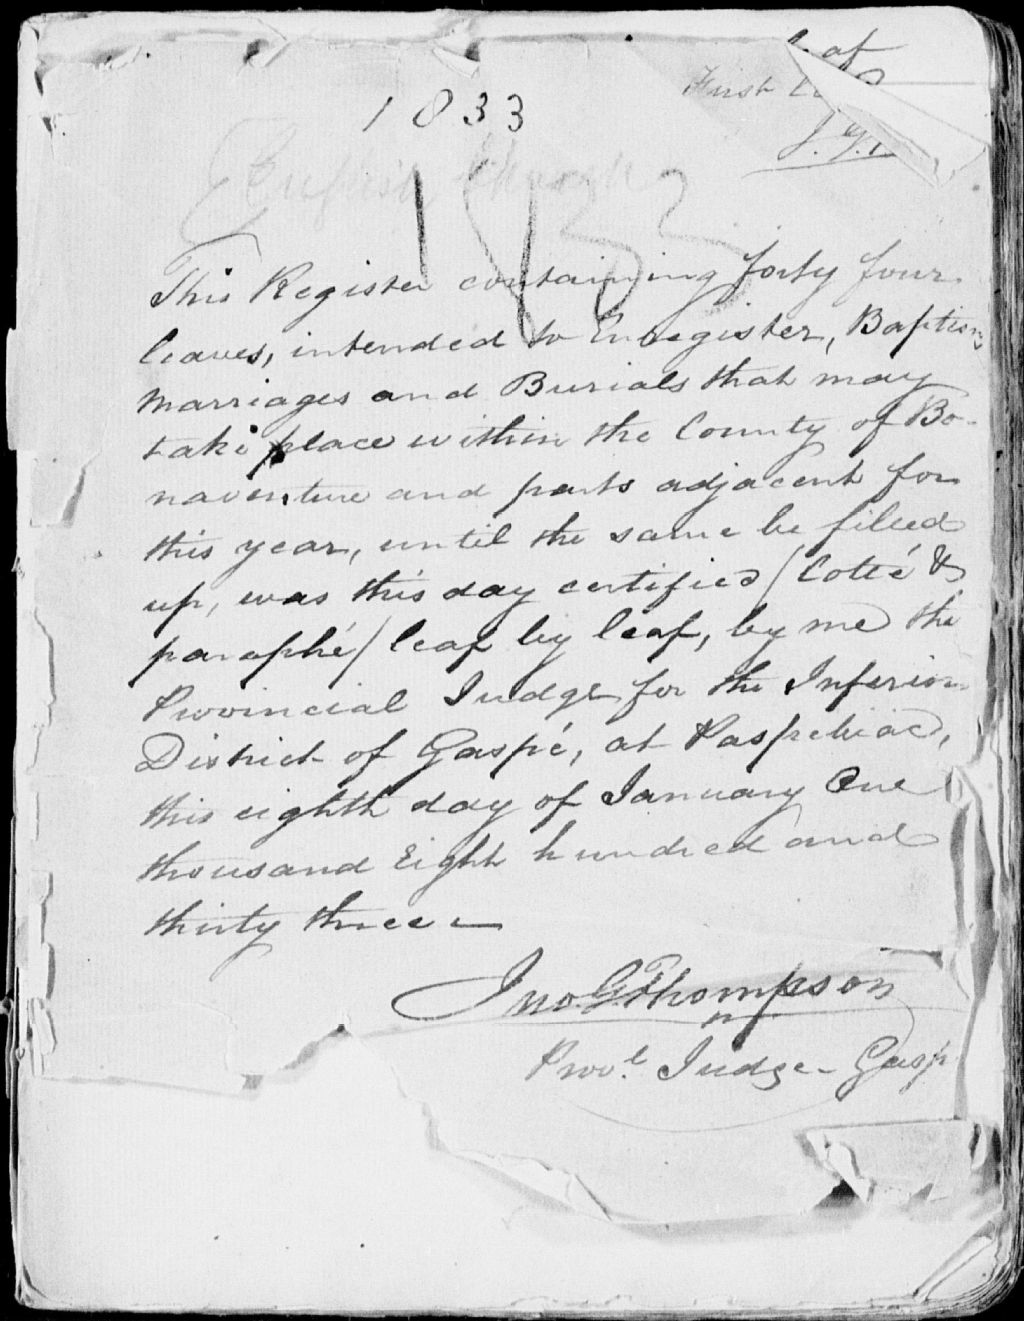 1833
First
J.G.
English Church
1833
This Register containing forty four
leaves, intended to Enregister, Baptisms
marriages and Burials that may
take place within the County of Bo-
naventure and parts adjacent for
this year, until the same be filled
up, was this day certified / Cotté &
paraphé / leaf by leaf, by me the
Provincial Judge for the Inferior
District of Gaspé, at Paspebiac,
this eighth day of January One
thousand Eight hundred and
thirty three —
Jno. G. Thompson
Prov.l Judge - Gasp